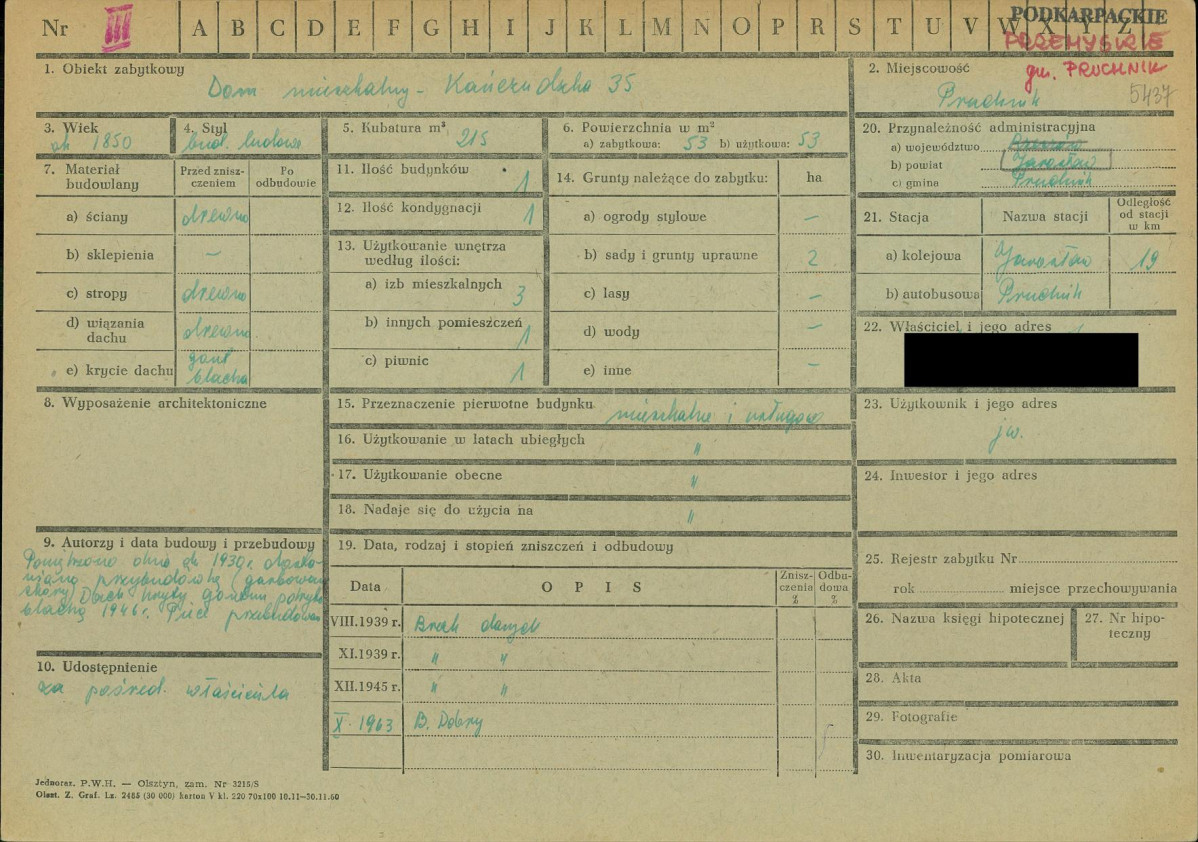 Nr III A B C D E F G H I J K L M N O P R S T U V W X Y Z
PODKARPACKIE
PRZEMYSKIE
gm. PRUCHNIK
5437
1. Obiekt zabytkowy
Dom mieszkalny - Kańczudzka 35
2. Miejscowość
Pruchnik
3. Wiek
ok 1850
4. Styl
bud. ludowe
5. Kubatura m³
215
6. Powierzchnia w m²
a) zabytkowa: 53 b) użytkowa: 53
7. Materiał budowlany
Przed znisz-
czeniem
Po
odbudowie
a) ściany drewno
b) sklepienia –
c) stropy drewno
d) wiązania
dachu drewno
e) krycie dachu gont
blacha
8. Wyposażenie architektoniczne
9. Autorzy i data budowy i przebudowy
Powiększono okna ok 1930 r.
przybudówkę (garbowan
skóry) Dach kryty gontem
blachą 1946 r. Piec przebudowa
10. Udostępnienie
za pośred. właściciela
11. Ilość budynków 1
12. Ilość kondygnacji 1
13. Użytkowanie wnętrza
według ilości:
a) izb mieszkalnych 3
b) innych pomieszczeń 1
c) piwnic 1
14. Grunty należące do zabytku: ha
a) ogrody stylowe –
b) sady i grunty uprawne 2
c) lasy –
d) wody –
e) inne –
15. Przeznaczenie pierwotne budynku mieszkalne i usługow
16. Użytkowanie w latach ubiegłych "
17. Użytkowanie obecne "
18. Nadaje się do użycia na "
19. Data, rodzaj i stopień zniszczeń i odbudowy
Data O P I S Znisz-
czenia
% Odbu-
dowa
%
VIII.1939 r. Brak danych
XI.1939 r. " "
XII.1945 r. " "
X. 1963 B. Dobry
20. Przynależność administracyjna
a) województwo Rzeszów
b) powiat Jarosław
c) gmina Pruchnik
21. Stacja Nazwa stacji Odległość
od stacji
w km
a) kolejowa Jarosław 19
b) autobusowa Pruchnik
22. Właściciel i jego adres
23. Użytkownik i jego adres
jw.
24. Inwestor i jego adres
25. Rejestr zabytku Nr
rok miejsce przechowywania
26. Nazwa księgi hipotecznej
27. Nr hipo-
teczny
28. Akta
29. Fotografie
30. Inwentaryzacja pomiarowa
Jednoraz. P.W.H. — Olsztyn, zam. Nr 3215/S
Olszt. Z. Graf. Lz. 2485 (30 000) karton V kl. 220 70x100 10.11—30.11.60